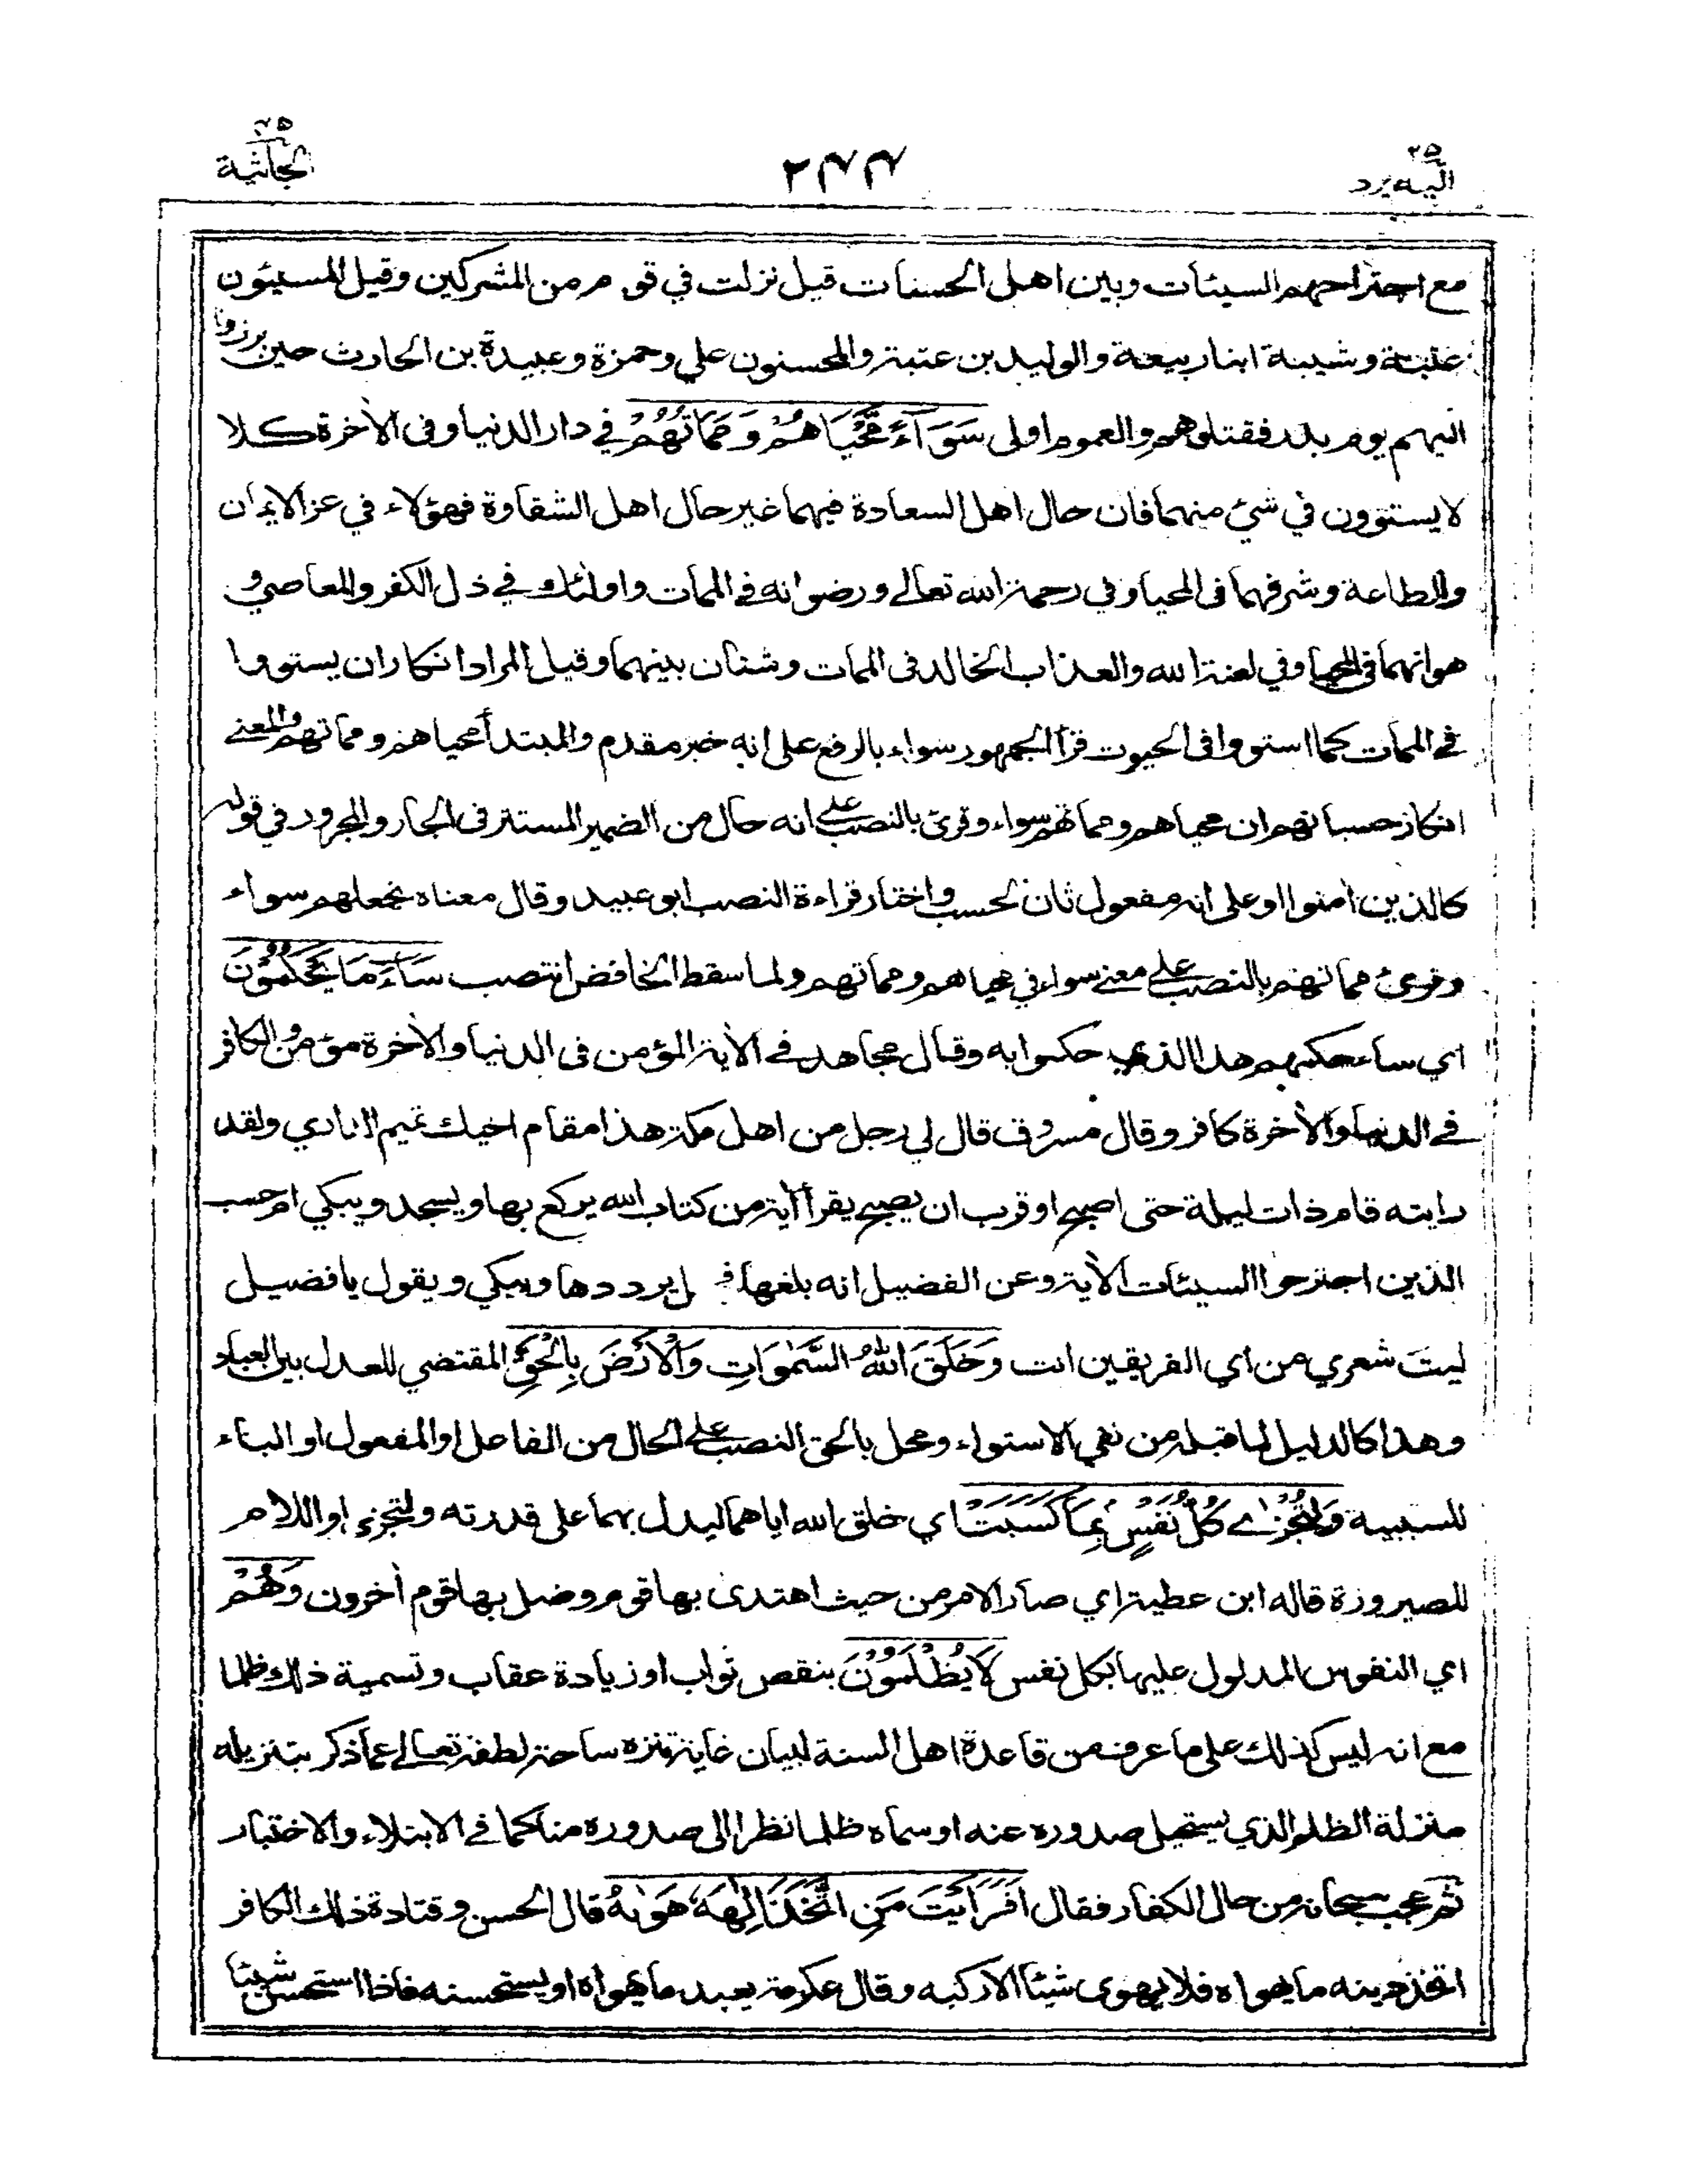 ٢٥
الجاثية
٢٤٤
٢٥
اليه يرد
مع اجتراحهم السيئات وبين اهل الحسنات قيل نزلت في قوم من المشركين وقيل المسيئون
عتبة وشيبة ابنا ربيعة والوليد بن عتبة والمحسنون علي وحمزة وعبيدة بن الحارث حين برزوا
اليهم يوم بدر فقتلوهم والعموم اولى سَوَآءً مَّحْيَاهُمْ وَمَمَاتُهُمْ في دار الدنيا وفى الأخرة كلا
لا يستوون في شئ منهما فان حال اهل السعادة فيهما غير حال اهل الشقاوة فهؤلاء في عز الايمان
والطاعة وشرفهما فى المحيا وفي رحمة الله تعالى ورضوانه في الممات واولئك في ذل الكفر والمعاصي و
هوانهما فى المحيا وفي لعنة الله والعذاب الخالد فى الممات وشتان بينهما وقيل المراد انكار ان يستووا
في الممات كما استووا فى الحيوت قرأ الجمهور سواء بالرفع على انه خبر مقدم والمبتدأ محياهم ومماتهم والمعنى
انكار حسبانهم ان محياهم ومماتهم سواء وقرئ بالنصب على انه حال من الضمير المستتر فى الجار والمجرور في قوله
كالذين أمنوا او على انه مفعول ثان لحسب واختار قراءة النصب ابو عبيد وقال معناه نجعلهم سواء
وقرئ مماتهم بالنصب على معنى سواء في محياهم ومماتهم ولما سقط الخافض انتصب سَآءَ مَا يَحْكُمُوْنَ
اي ساء حكمهم هذا الذي حكموا به وقال مجاهد في الأية المؤمن فى الدنيا والأخرة مؤمن والكافر
في الدنيا والأخرة كافر وقال مسروق قال لي رجل من اهل مكة هذا مقام اخيك تميم الداري ولقد
رايته قام ذات ليلة حتى اصبح او قرب ان يصبح يقرأ أية من كتاب الله يركع بها ويسجد ويبكي ام حسب
الذين اجترحوا السيئات الأية وعن الفضيل انه بلغها ف ل يرددها ويبكي ويقول يا فضيل
ليتَ شعري من اي الفريقين انت وَخَلَقَ اللّٰهُ السَّمٰوَاتِ وَالْاَرْضَ بِالْحَقِّ المقتضي للعدل بين العباد
وهذا كالدليل لما قبله من نفي الاستواء ومحل بالحق النصب على الحال من الفاعل او المفعول او الباء
للسببية وَلِتُجْزٰى كُلُّ نَفْسٍۭ بِمَا كَسَبَتْ اي خلق الله اياهما ليدل بهما على قدرته ولتجزى او اللام
للصيرورة قاله ابن عطية اي صار الامر من حيث اهتدى بها قوم وضل بها قوم أخرون وَهُمْ
اي النفوس المدلول عليها بكل نفس لَا يُظْلَمُوْنَ بنقص ثواب او زيادة عقاب وتسمية ذلك ظلما
مع انه ليس كذلك على ما عرف من قاعدة اهل السنة لبيان غاية تنزه ساحة لطفه تعالى عما ذكر بتنزيله
منزلة الظلم الذي يستحيل صدوره عنه او سماه ظلما نظرا الى صدوره منا كما في الابتلاء والاختبار
ثم عجب سبحانه من حال الكفار فقال اَفَرَاَيْتَ مَنِ اتَّخَذَ اِلٰهَهٗ هَوٰىهُ قال الحسن وقتادة ذلك الكافر
اتخذ دينه ما يهواه فلا يهوى شيئا الا ركبه وقال عكرمة يعبد ما يهواه او يستحسنه فاذا استحسن شيئا